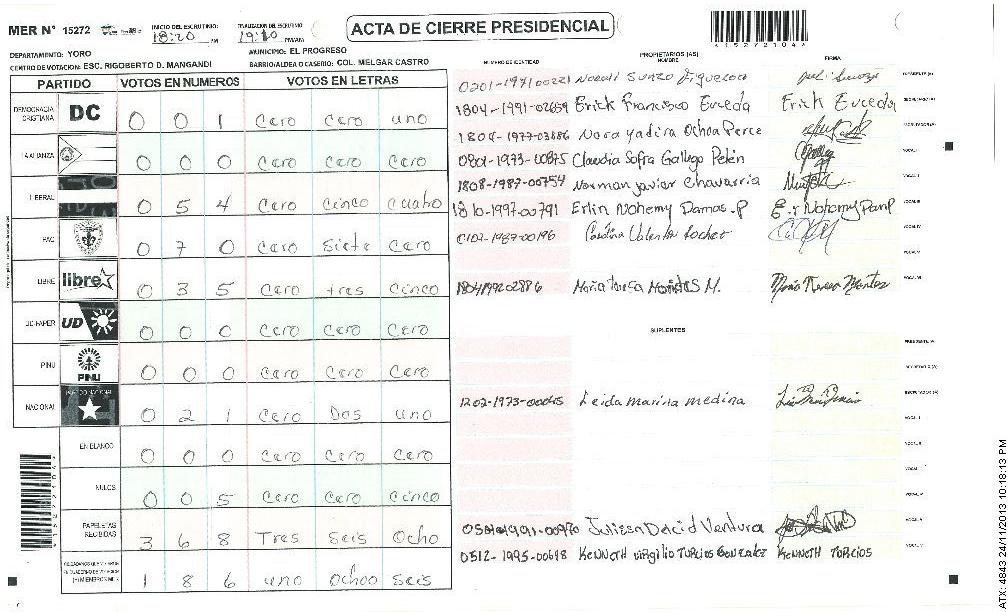 MER N° 15272 INICIO DEL ESCRUTINIO: 18:20 PM FINALIZACION DEL ESCRUTINIO 19:10 PM/AM ACTA DE CIERRE PRESIDENCIAL
DEPARTAMENTO: YORO MUNICIPIO: EL PROGRESO
CENTRO DE VOTACION: ESC. RIGOBERTO D. MANGANDI BARRIO/ALDEA O CASERIO: COL. MELGAR CASTRO
PARTIDO VOTOS EN NUMEROS VOTOS EN LETRAS
DEMOCRACIA CRISTIANA DC 0 0 1 Cero Cero uno
LA ALIANZA 0 0 0 Cero Cero Cero
LIBERAL 0 5 4 Cero Cinco Cuatro
PAC 0 7 0 Cero Siete Cero
LIBRE libre 0 3 5 Cero tres Cinco
UD-FAPER UD 0 0 0 Cero Cero Cero
PINU PINU 0 0 0 Cero Cero Cero
NACIONAL 0 2 1 Cero Dos uno
EN BLANCO 0 0 0 Cero Cero Cero
NULOS 0 0 5 Cero Cero Cinco
PAPELETAS RECIBIDAS 3 6 8 Tres Seis Ocho
1 8 6 uno Ochoo Seis
PROPIETARIOS (AS)
NUMERO DE IDENTIDAD NOMBRE FIRMA
0201-1971-00221
1804-1991-02659 Erick Francisco Euceda Erick Euceda
1804-1977-03886 Nora yadira Ochoa Perce
0801-1973-00875 Claudia Sofra Gallego Pelén
1808-1987-00754 Norman javier Chavarria
1810-1997-00791 Erlin Nohemy Damas.P
Carolina
Maria Teresa
SUPLENTES
1202-1973-00045 Leida marina medina
Julissa David Ventura
0512-1995-00648 KENNETH VIRGILIO TURCIOS GONZALEZ KENNETH TURCIOS
ATX: 4843 24/11/2013 10:18:13 PM